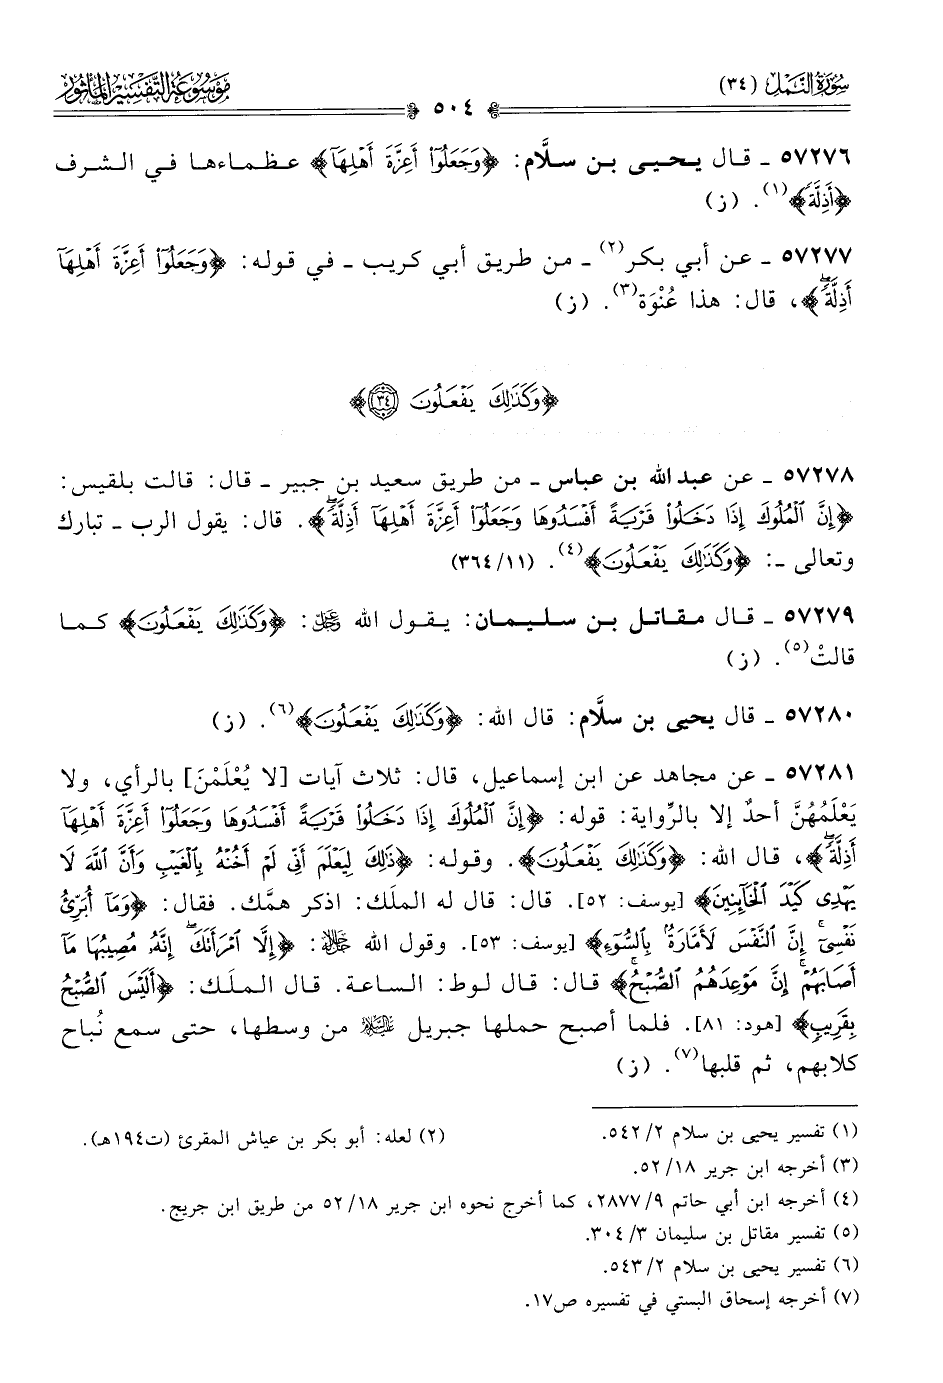 سُورَةُ النَّمْل (٣٤)
٥٠٤
مَوْسُوعَةُ التَّفْسِيرِ المَأْثُور
٥٧٢٧٦ ـ قال يحيى بن سلَّام: ﴿وَجَعَلُوٓاْ أَعِزَّةَ أَهْلِهَآ﴾ عظماءها في الشرف
﴿أَذِلَّةٗ﴾(١). (ز)
٥٧٢٧٧ ـ عن أبي بكر(٢) ـ من طريق أبي كريب ـ في قوله: ﴿وَجَعَلُوٓاْ أَعِزَّةَ أَهْلِهَآ
أَذِلَّةٗۖ﴾، قال: هذا عُنْوَة(٣). (ز)
﴿وَكَذَٰلِكَ يَفۡعَلُونَ ٣٤﴾
٥٧٢٧٨ ـ عن عبد الله بن عباس ـ من طريق سعيد بن جبير ـ قال: قالت بلقيس:
﴿إِنَّ ٱلۡمُلُوكَ إِذَا دَخَلُواْ قَرۡيَةً أَفۡسَدُوهَا وَجَعَلُوٓاْ أَعِزَّةَ أَهۡلِهَآ أَذِلَّةٗۖ﴾. قال: يقول الرب ـ تبارك
وتعالى ـ: ﴿وَكَذَٰلِكَ يَفۡعَلُونَ﴾(٤). (٣٦٤/١١)
٥٧٢٧٩ ـ قال مقاتل بن سليمان: يقول الله ﷿: ﴿وَكَذَٰلِكَ يَفۡعَلُونَ﴾ كما
قالتْ(٥). (ز)
٥٧٢٨٠ ـ قال يحيى بن سلَّام: قال الله: ﴿وَكَذَٰلِكَ يَفۡعَلُونَ﴾(٦). (ز)
٥٧٢٨١ ـ عن مجاهد عن ابن إسماعيل، قال: ثلاث آيات [لا يُعْلَمْنَ] بالرأي، ولا
يَعْلَمُهُنَّ أحدٌ إلا بالرِّواية: قوله: ﴿إِنَّ ٱلۡمُلُوكَ إِذَا دَخَلُواْ قَرۡيَةً أَفۡسَدُوهَا وَجَعَلُوٓاْ أَعِزَّةَ أَهۡلِهَآ
أَذِلَّةٗۖ﴾، قال الله: ﴿وَكَذَٰلِكَ يَفۡعَلُونَ﴾. وقوله: ﴿ذَٰلِكَ لِيَعۡلَمَ أَنِّي لَمۡ أَخُنۡهُ بِٱلۡغَيۡبِ وَأَنَّ ٱللَّهَ لَا
يَهۡدِي كَيۡدَ ٱلۡخَآئِنِينَ﴾ [يوسف: ٥٢]. قال: قال له الملَك: اذكر همَّك. فقال: ﴿وَمَآ أُبَرِّئُ
نَفۡسِيٓۚ إِنَّ ٱلنَّفۡسَ لَأَمَّارَةُۢ بِٱلسُّوٓءِ﴾ [يوسف: ٥٣]. وقول الله ﷻ: ﴿إِلَّا ٱمۡرَأَتَكَۖ إِنَّهُۥ مُصِيبُهَا مَآ
أَصَابَهُمۡۚ إِنَّ مَوۡعِدَهُمُ ٱلصُّبۡحُۚ﴾ قال: قال لوط: الساعة. قال الملَك: ﴿أَلَيۡسَ ٱلصُّبۡحُ
بِقَرِيبٖ﴾ [هود: ٨١]. فلما أصبح حملها جبريل ﵇ من وسطها، حتى سمع نُباح
كلابهم، ثم قلبها(٧). (ز)
(١) تفسير يحيى بن سلام ٥٤٢/٢.
(٢) لعله: أبو بكر بن عياش المقرئ (ت١٩٤هـ).
(٣) أخرجه ابن جرير ٥٢/١٨.
(٤) أخرجه ابن أبي حاتم ٢٨٧٧/٩، كما أخرج نحوه ابن جرير ٥٢/١٨ من طريق ابن جريج.
(٥) تفسير مقاتل بن سليمان ٣٠٤/٣.
(٦) تفسير يحيى بن سلام ٥٤٣/٢.
(٧) أخرجه إسحاق البستي في تفسيره ص١٧.